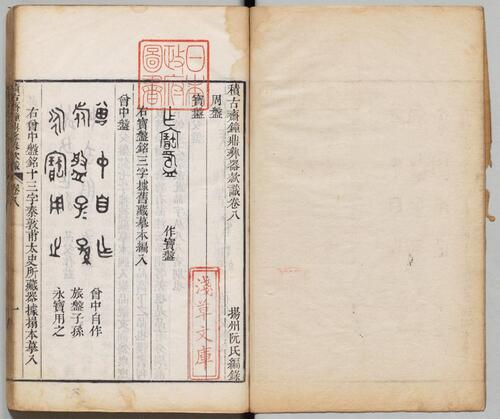 積古齋鐘鼎彝器款識卷八
揚州阮氏編錄
周盤
寶盤
作寶盤
右寶盤銘三字據舊藏摹本編入
曾中盤
曾中自作
旅盤子孫
永寶用之
右曾中盤銘十三字秦敦甫太史所藏器據搨本摹入
積古齋鐘鼎彝器款識 卷八
一
日本
政府
圖書
淺草文庫